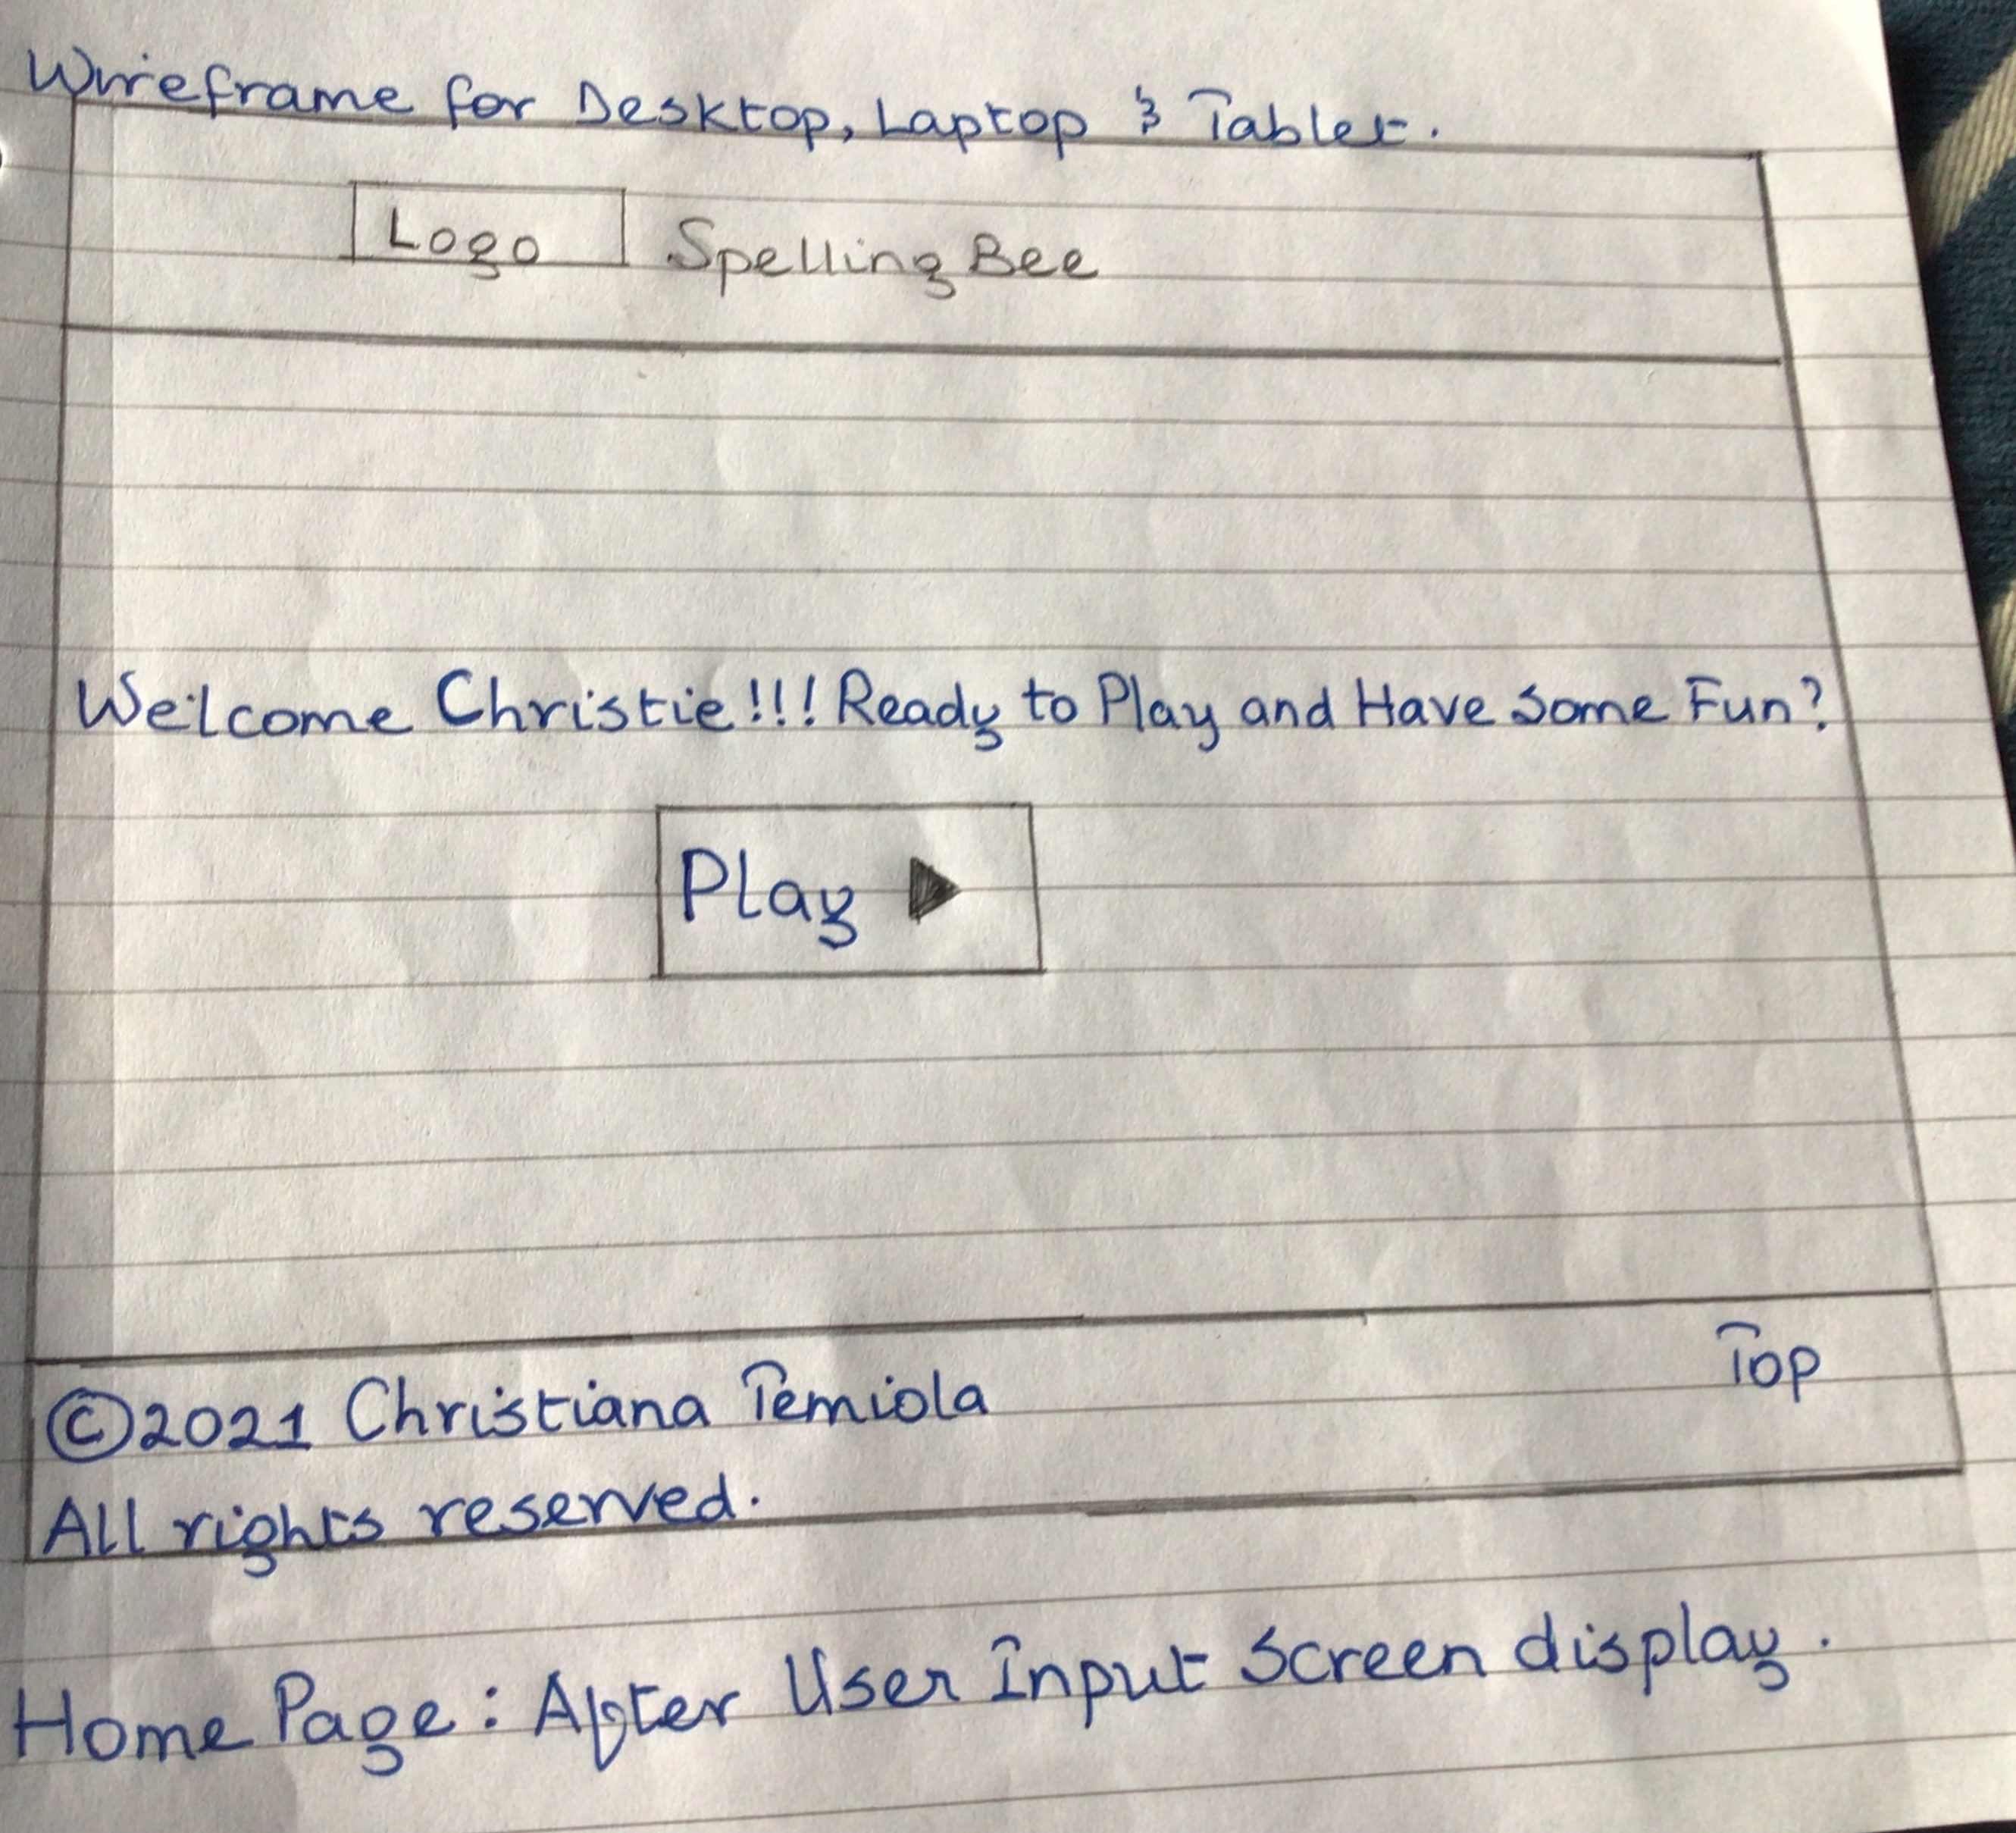 Wireframe for Desktop, Laptop & Tablet.
Logo Spelling Bee
Welcome Christie!!! Ready to Play and Have Some Fun?
Play ▶
©2021 Christiana Temiola Top
All rights reserved.
Home Page: After User Input Screen display.